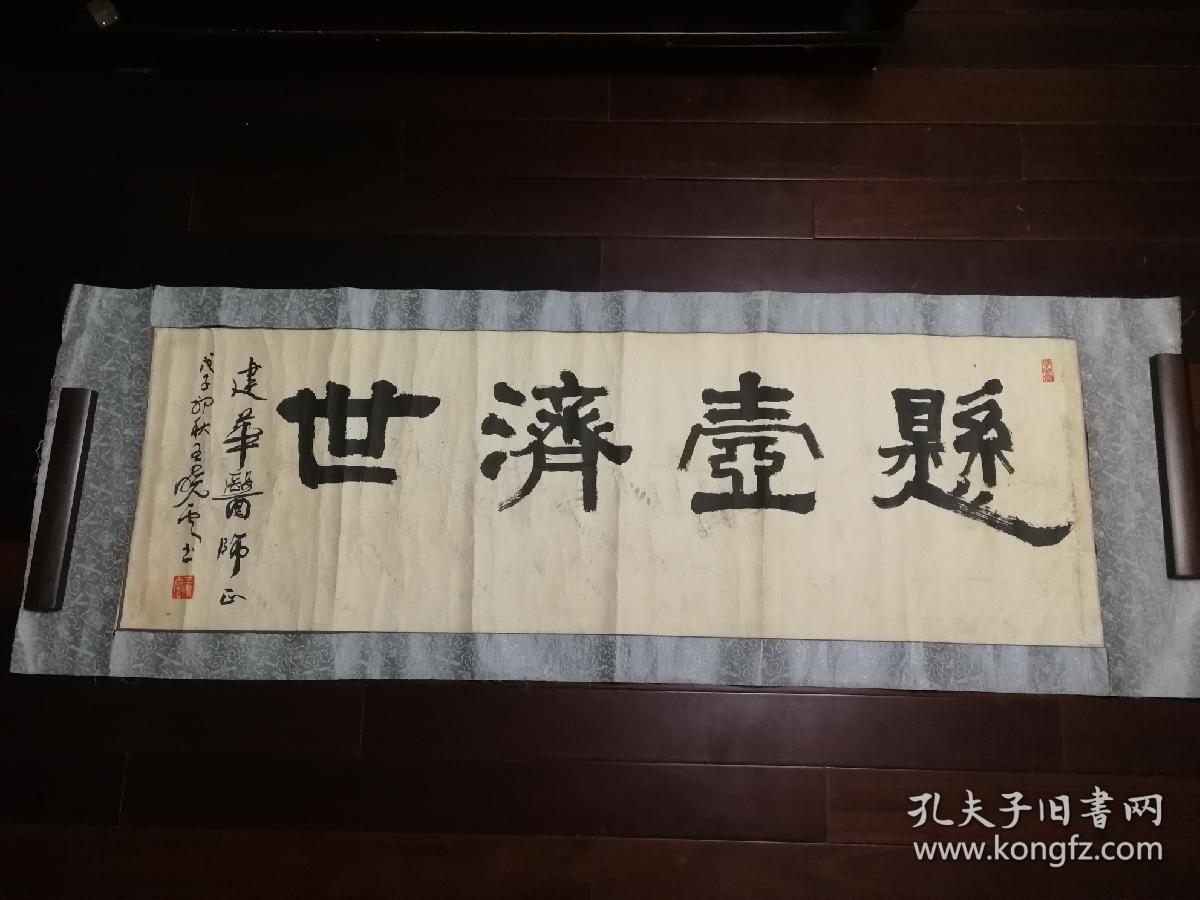 懸壺濟世
建華醫師正
戊子初秋王曉雲書
孔夫子旧書网
www.kongfz.com